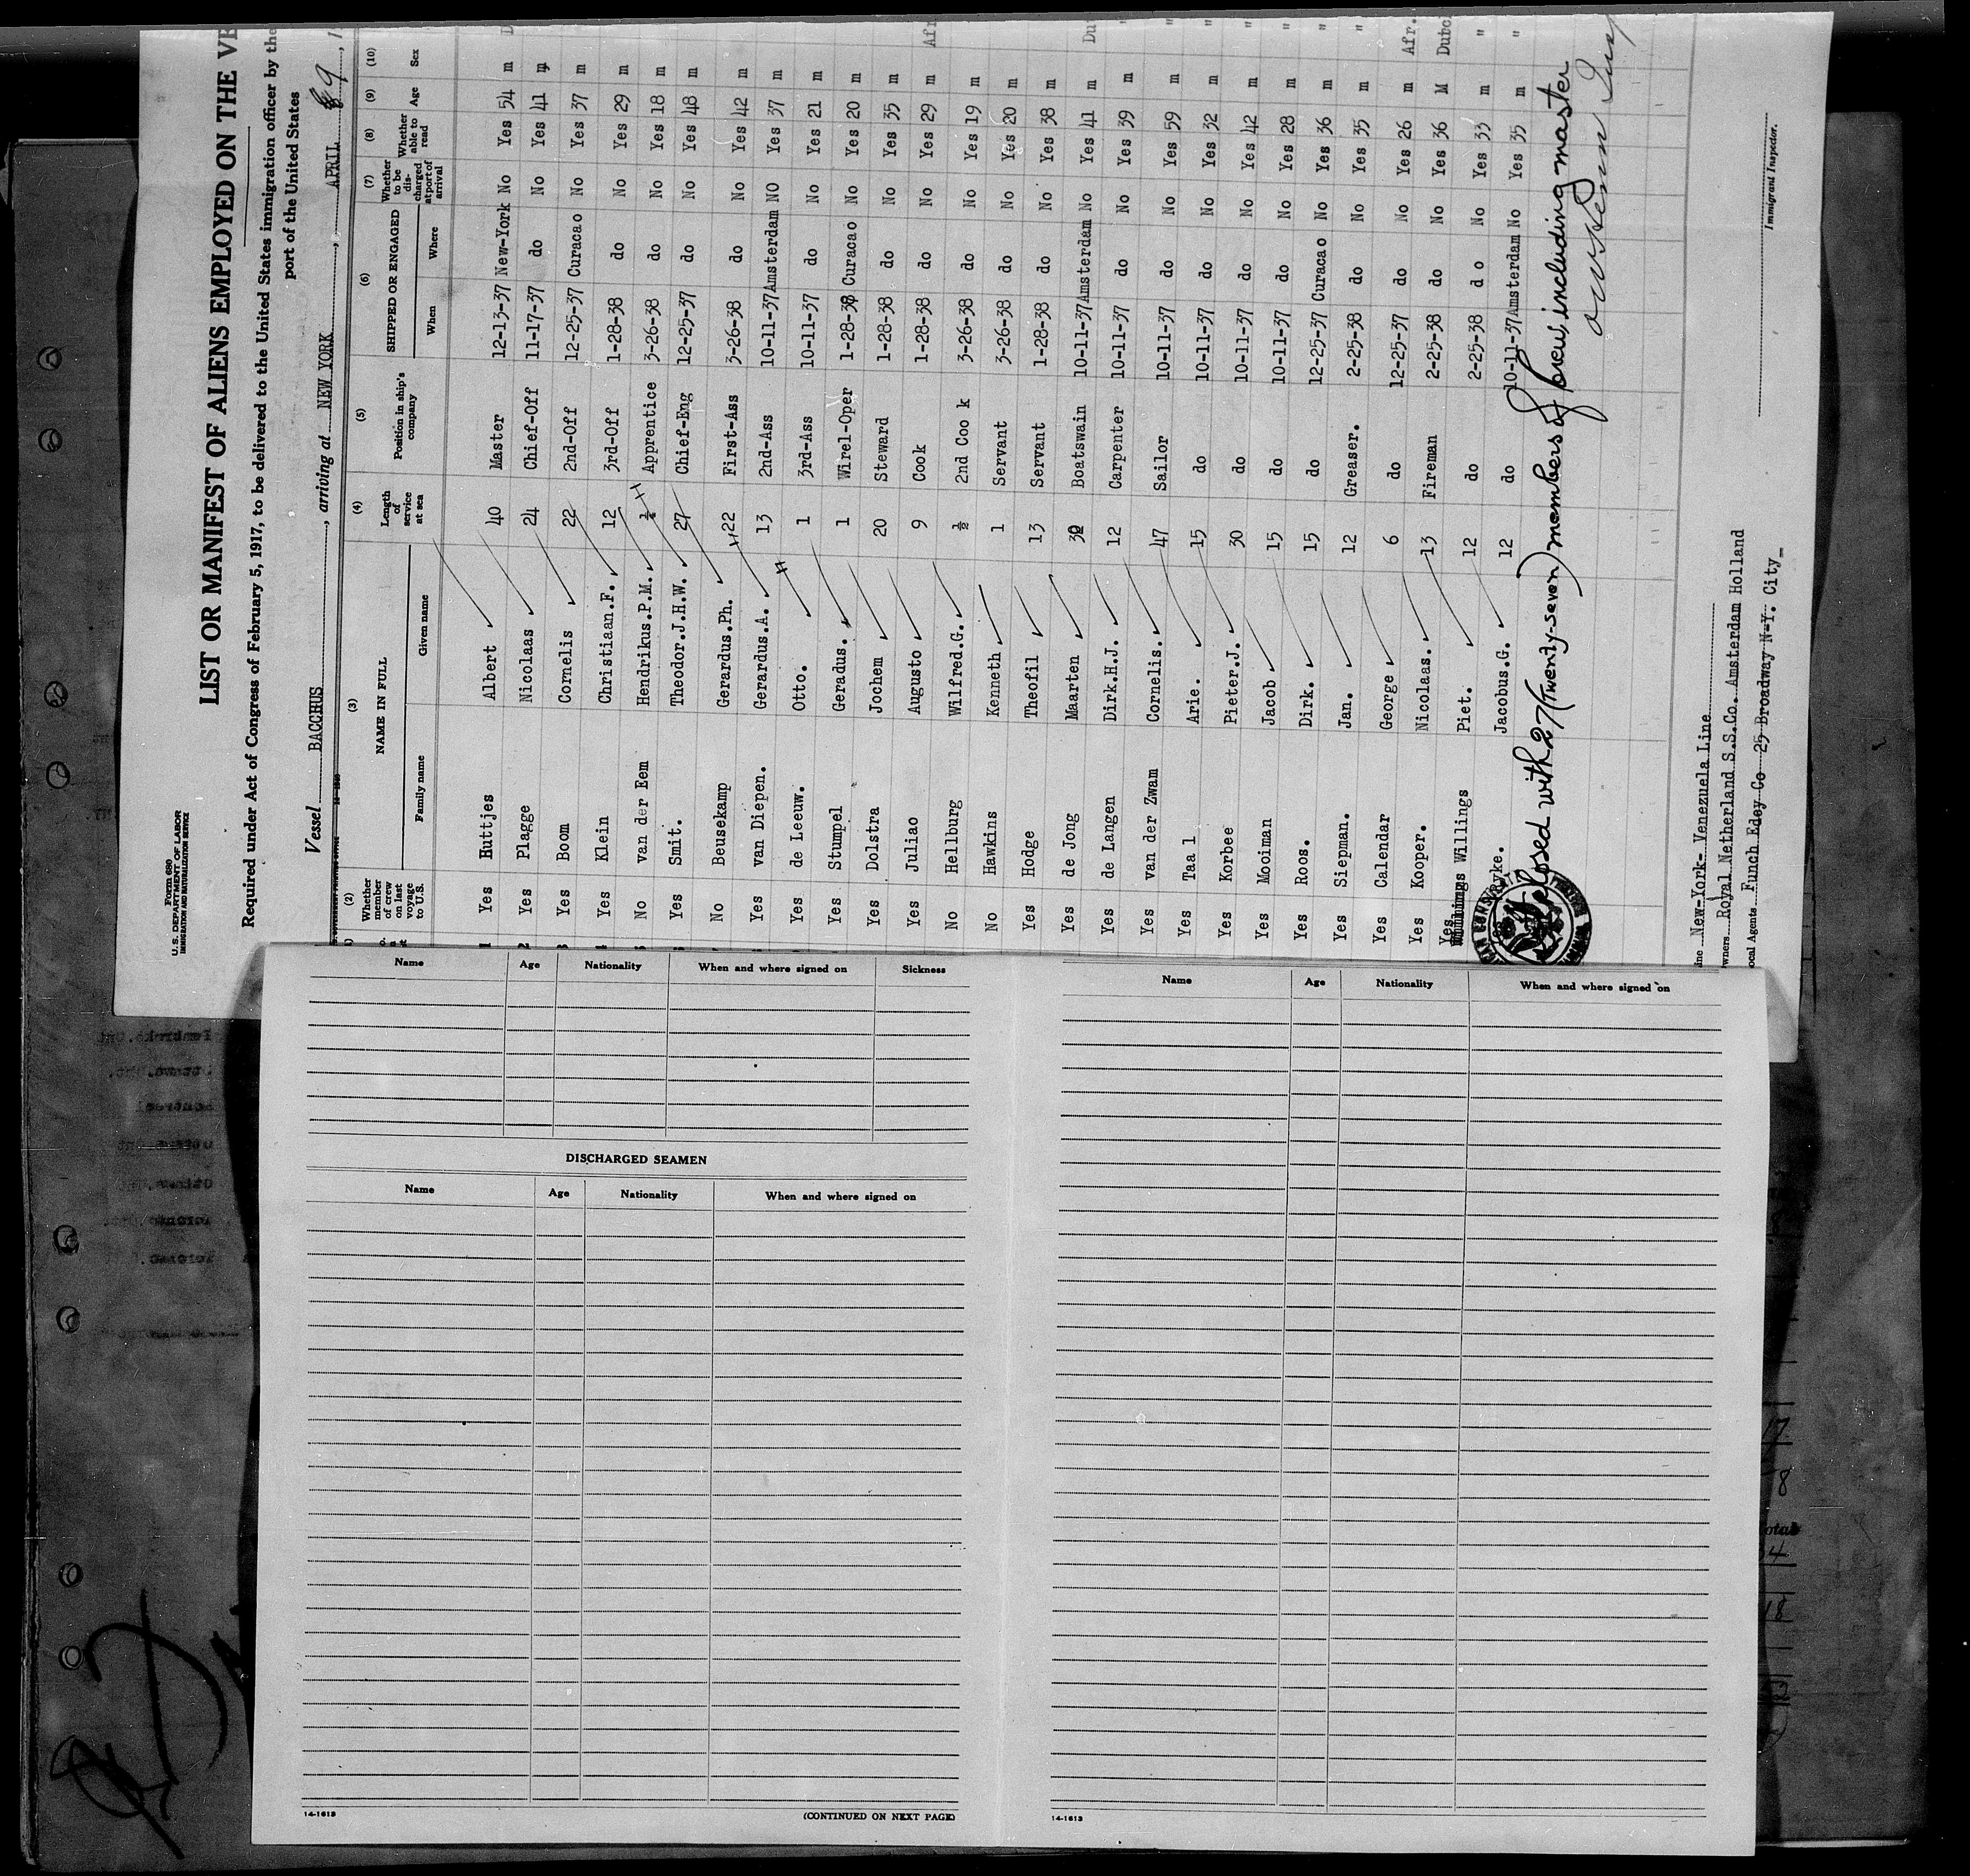 Form 680
U.S. DEPARTMENT OF LABOR
IMMIGRATION AND NATURALIZATION SERVICE
LIST OR MANIFEST OF ALIENS EMPLOYED ON THE
Required under Act of Congress of February 5, 1917, to be delivered to the United States immigration officer by the
port of the United States
Vessel BACCHUS, arriving at NEW YORK, APRIL 9, 1
(2) (3) (4) (5) (6) (7) (8) (9) (10)
Whether member of crew on last voyage to U.S. NAME IN FULL Length of service at sea Position in ship's company SHIPPED OR ENGAGED Whether to be discharged at port of arrival Whether able to read Age Sex
Family name Given name When Where
1 Yes Huttjes Albert 40 Master 12-13-37 New-York No Yes 54 m
2 Yes Plagge Nicolaas 24 Chief-Off 11-17-37 do No Yes 41 m
3 Yes Boom Cornelis 22 2nd-Off 12-25-37 Curacao No Yes 37 m
4 Yes Klein Christiaan.F. 12 3rd-Off 1-28-38 do No Yes 29 m
5 No van der Eem Hendrikus.P.M. Apprentice 3-26-38 do No Yes 18 m
Yes Smit. Theodor.J.H.W. 27 Chief-Eng 12-25-37 do No Yes 48 m
No Beusekamp Gerardus.Ph. 22 First-Ass 3-26-38 do No Yes 42 m
Yes van Diepen. Gerardus.A. 13 2nd-Ass 10-11-37 Amsterdam NO Yes 37 m
Yes de Leeuw. Otto. 1 3rd-Ass 10-11-37 do No Yes 21 m
Yes Stumpel Geradus. 1 Wirel-Oper 1-28-38 Curacao No Yes 20 m
Yes Dolstra Jochem 20 Steward 1-28-38 do No Yes 35 m
Yes Juliao Augusto 9 Cook 1-28-38 do No Yes 29 m Afr
No Hellburg Wilfred.G. ½ 2nd Coo k 3-26-38 do No Yes 19 m
No Hawkins Kenneth 1 Servant 3-26-38 do No Yes 20 m
Yes Hodge Theofil 13 Servant 1-28-38 do No Yes 38 m
Yes de Jong Maarten 30 Boatswain 10-11-37 Amsterdam No Yes 41 m Du
Yes de Langen Dirk.H.J. 12 Carpenter 10-11-37 do No Yes 39 m "
Yes van der Zwam Cornelis. 47 Sailor 10-11-37 do No Yes 59 m "
Yes Taa l Arie. 15 do 10-11-37 do No Yes 32 m "
Yes Korbee Pieter.J. 30 do 10-11-37 do No Yes 42 m "
Yes Mooiman Jacob 15 do 10-11-37 do No Yes 28 m "
Yes Roos. Dirk. 15 do 12-25-37 Curacao No Yes 36 m "
Yes Siepman. Jan. 12 Greaser. 2-25-38 do No Yes 35 m "
Yes Calendar George 6 do 12-25-37 do No Yes 26 m Afr.
Yes Kooper. Nicolaas. 13 Fireman 2-25-38 do No Yes 36 M Dutc
Yes Willings Piet. 12 do 2-25-38 d o No Yes 33 m "
ryke. Jacobus.G. 12 do 10-11-37 Amsterdam No Yes 35 m "
Closed with 27 (Twenty-seven) members of crew, including master
ine New-York- Venezuela Line
wners Royal Netherland S.S.Co. Amsterdam Holland
ocal Agents Funch Edey Co 25 Broadway N-Y. City
Immigrant Inspector.
Name Age Nationality When and where signed on Sickness
DISCHARGED SEAMEN
Name Age Nationality When and where signed on
14-1613
(CONTINUED ON NEXT PAGE)
Name Age Nationality When and where signed on
14-1613
17
8
otal
18